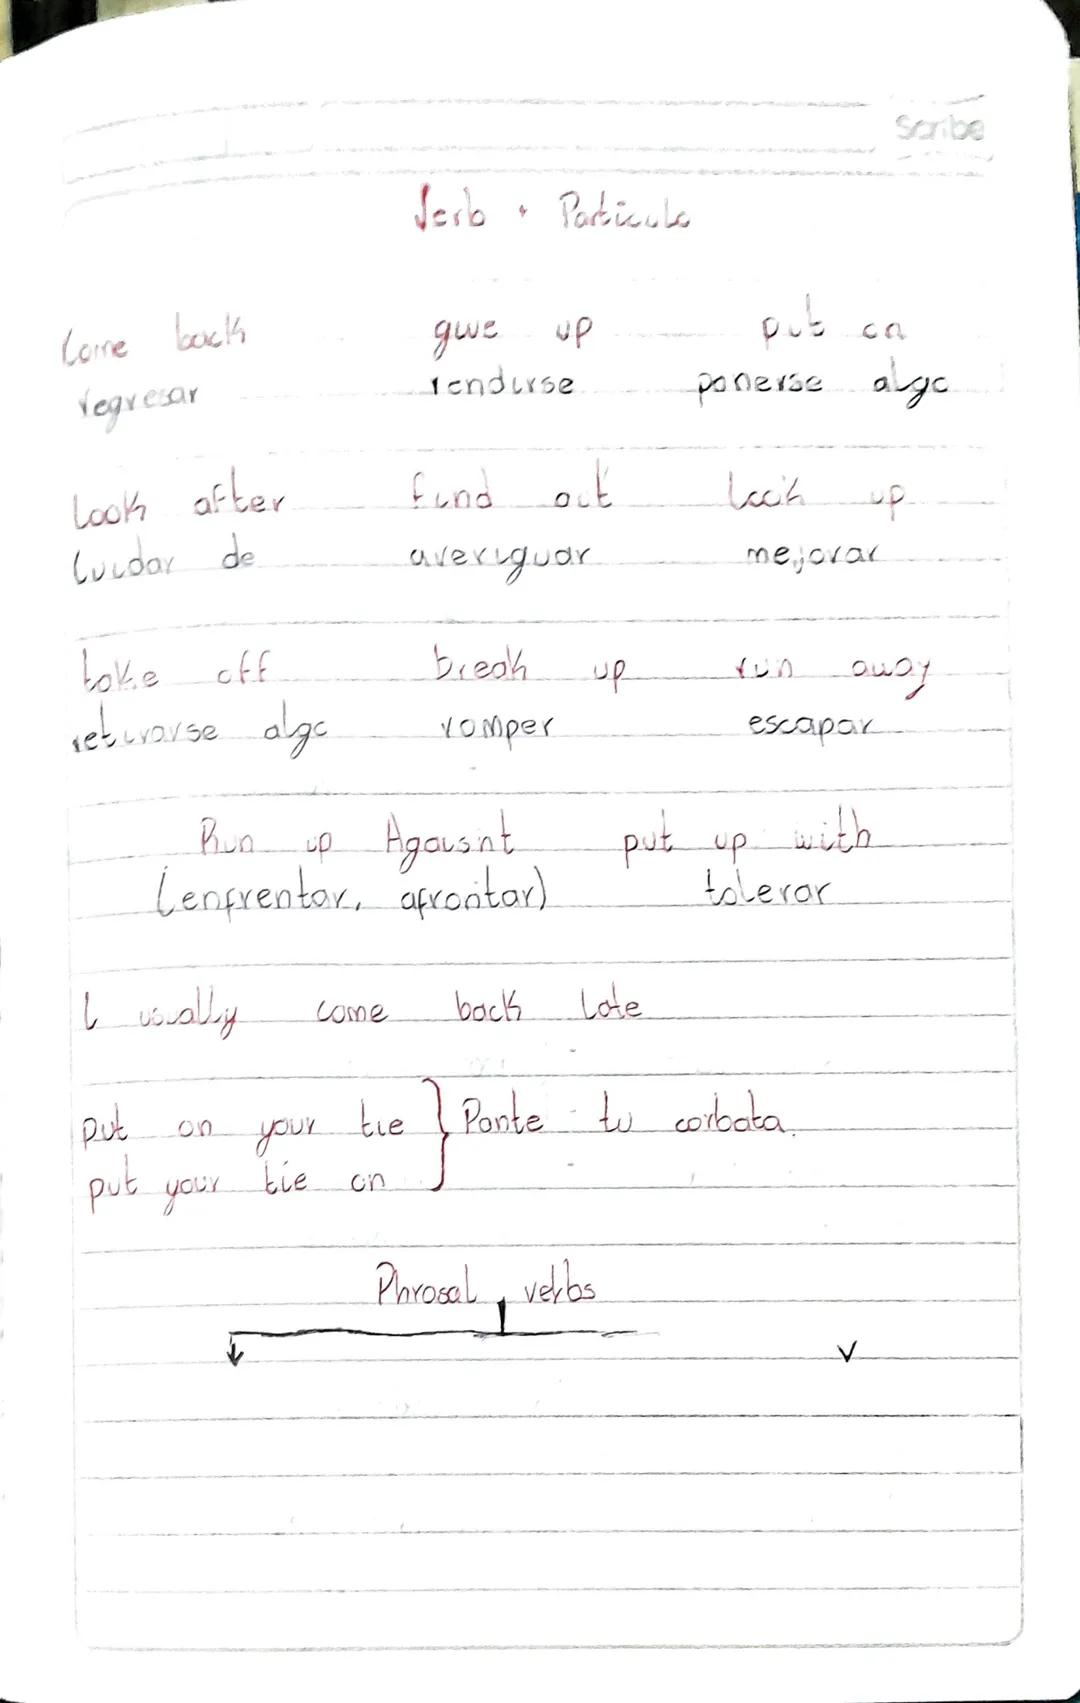 Scribe
Verb + Particula
Come back give up put on
regresar rendirse ponerse algo
Look after find out look up
Cuidar de averiguar mejorar
take off break up run away
retirarse algo romper escapar
Run up Agaisnt put up with
(enfrentar, afrontar) tolerar
I usually come back late
put on your tie } Ponte tu corbata.
put your tie on
Phrasal verbs